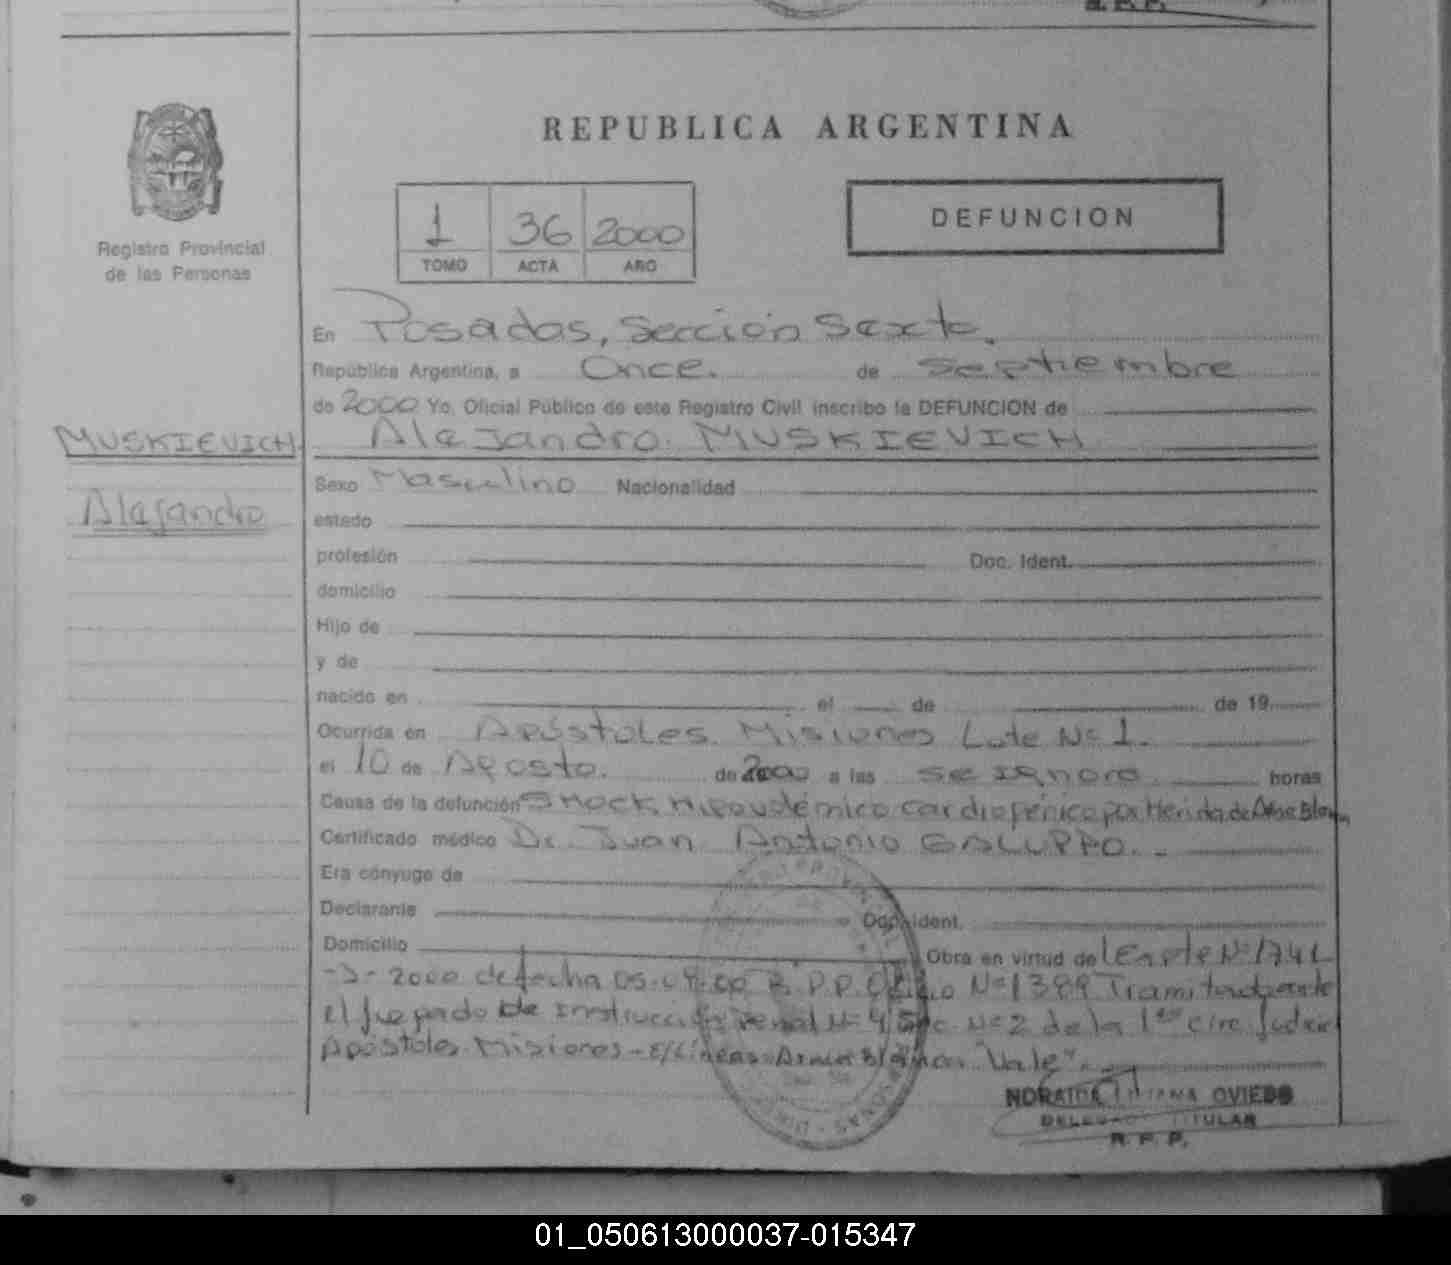 REPUBLICA ARGENTINA
Registro Provincial
de las Personas
1 36 2000
TOMO ACTA AÑO
DEFUNCION
En Posadas, Sección Sexta.
República Argentina, a Once. de Septiembre
de 2000 Yo, Oficial Público de este Registro Civil inscribo la DEFUNCION de
MUSKIEVICH
Alejandro
Alejandro MUSKIEVICH
Sexo Masculino Nacionalidad
estado
profesión Doc. Ident.
domicilio
Hijo de
y de
nacido en el de de 19
Ocurrida en Apóstoles. Misiones Lote Nº 1.
el 10 de Agosto. de 2000 a las se ignora horas
Causa de la defunción Shock Hipovolémico cardiogénico por Herida de
Certificado médico Dr. Juan Antonio GALUPPO.
Era cónyuge de
Declarante Doc. Ident.
Domicilio Obra en virtud de Expte Nº 1741
2000 de fecha R.P.P. Oficio Nº 1389 Tramitado ante
el Juzgado de Instrucción Penal Nº 4 Sec. Nº 2 de la 1ª circ. Judicial
Apóstoles. Misiones - E/Líneas: Arma Blanca "Vale".
NORA LILIANA OVIEDO
DELEGADO TITULAR
R. P. P.
01_050613000037-015347